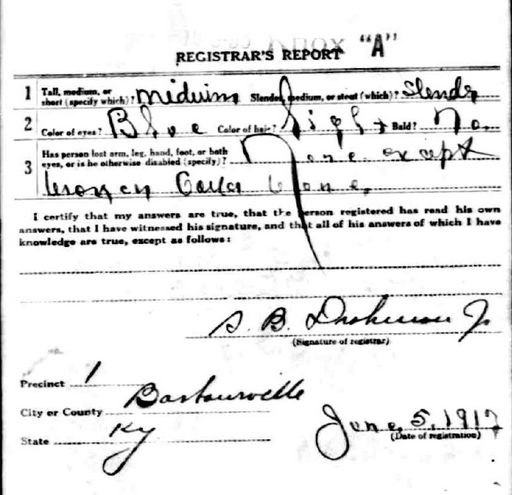 "A"
REGISTRAR'S REPORT
1 Tall, medium, or short (specify which)? Midium Slender, medium, or stout (which)? Slender
2 Color of eyes? Blue Color of hair? Light Bald? No.
3 Has person lost arm, leg, hand, foot, or both
eyes, or is he otherwise disabled (specify)? None except
Broken Coller bone.
I certify that my answers are true, that the person registered has read his own
answers, that I have witnessed his signature, and that all of his answers of which I have
knowledge are true, except as follows:
S. B. Jr
(Signature of registrar)
Precinct 1
City or County Barbourville
State Ky
June 5, 1917
(Date of registration)